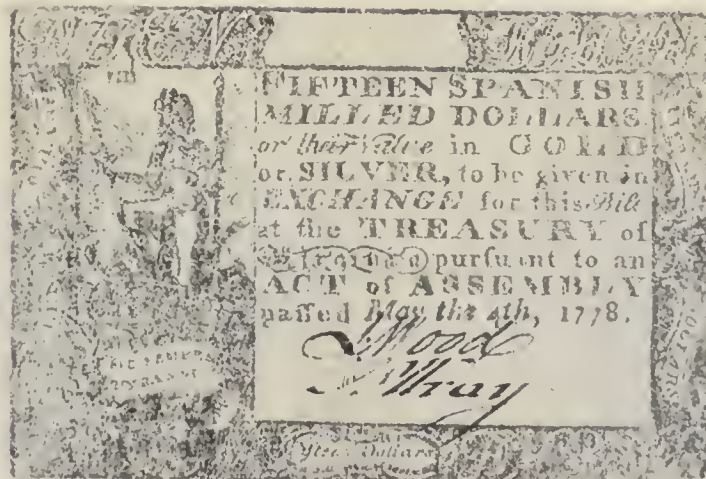 FIFTEEN SPANISH
MILLED DOLLARS
or their Value in GOLD
or SILVER, to be given in
EXCHANGE for this Bill
at the TREASURY of
Virginia purſuant to an
ACT of ASSEMBLY
paſſed May the 4th, 1778.
Wood
Wray
SIC SEMPER
TYRANNIS
Dollars